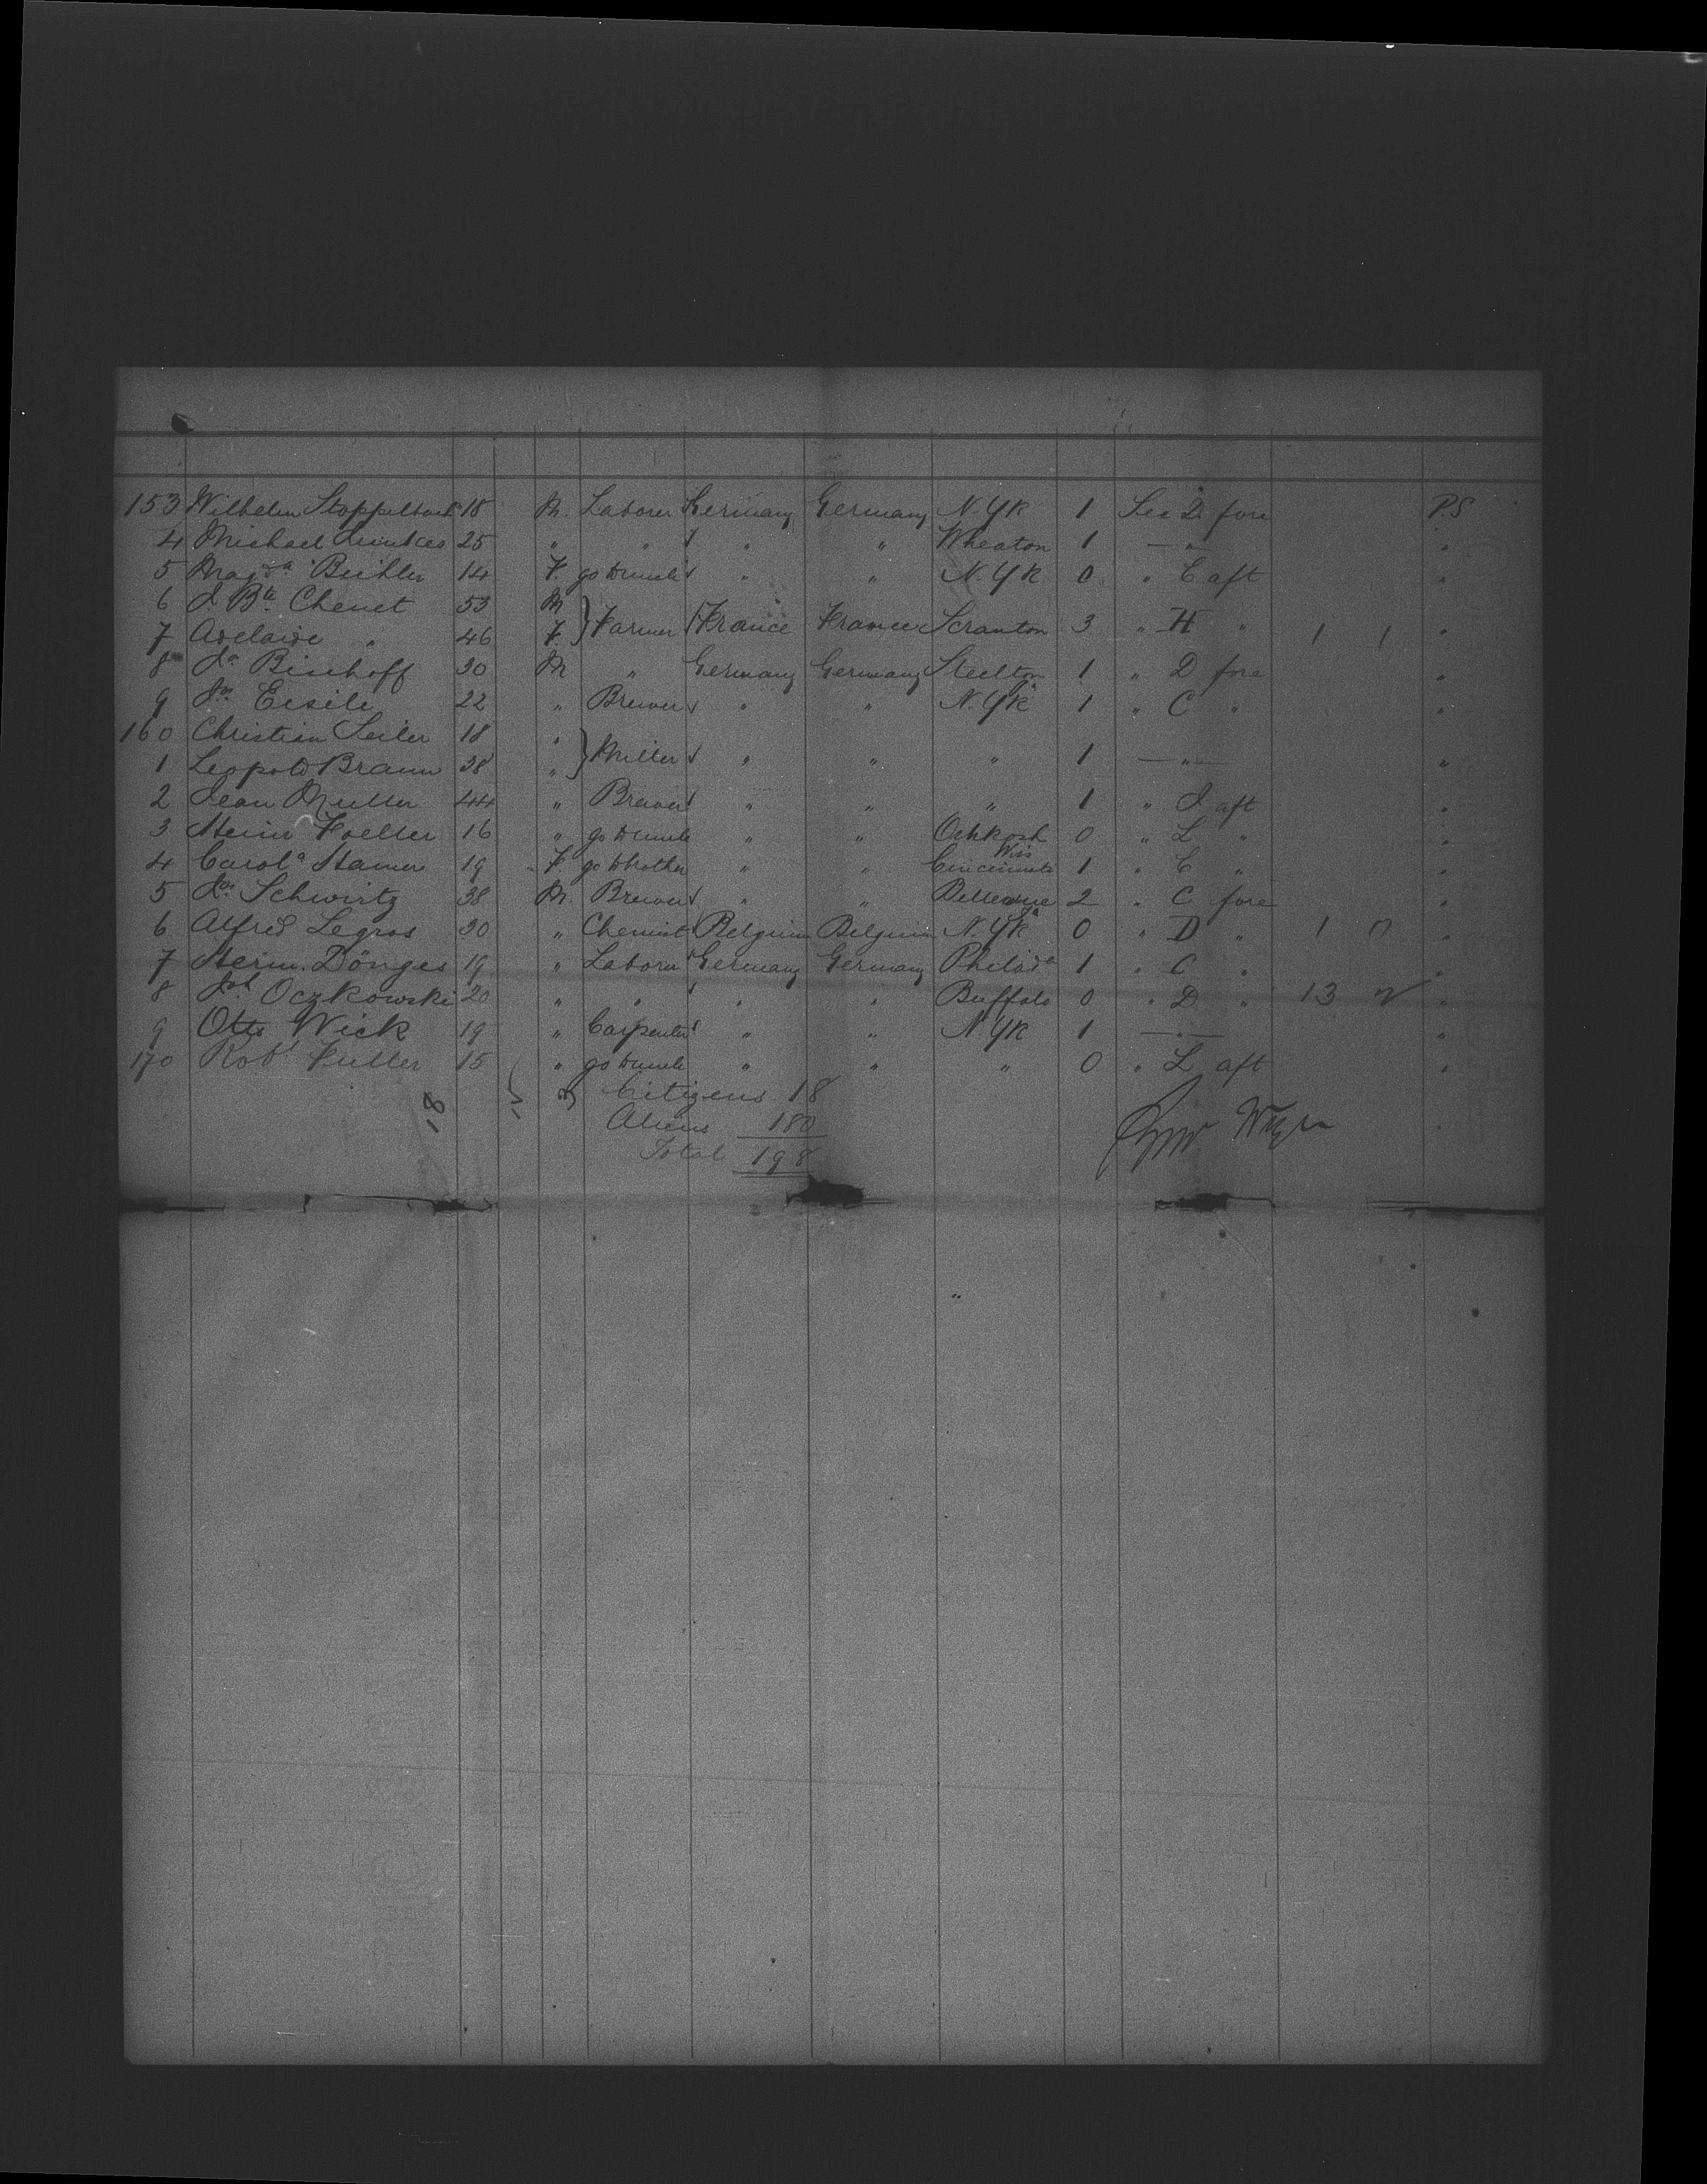 153 Wilhelm Stoppelbach 18 M. Laborer Germany Germany N. Yk 1 Sec D. fore P.S
4 Michael 25 " " " " Wheaton 1 — " — "
5 Magda Buhler 14 F. go to uncle " " N. Yk 0 " E aft "
6 J. Bte Chenet 53 M
7 Adelaide " 46 F. } Farmer France France Scranton 3 " H " 1 1 "
8 Jn Bischoff 30 M " Germany Germany Steelton 1 " D fore "
9 Jn Eisili 22 " Brewer " " N. Yk 1 " C " "
160 Christian Seiler 18 "
1 Leopold Braun 38 " } Miller " " " 1 — " — "
2 Jean Muller 44 " Brewer " " " 1 " J aft "
3 Heinr Foeller 16 " go to uncle " " Oshkosh Wis 0 " L " "
4 Carola Hamer 19 F go to brother " " Cincinnati 1 " E " "
5 Jn Schwirtz 38 M. Brewer " " Bellevue 2 " C fore "
6 Alfred Legros 30 " Chemist Belgium Belgium N. Yk 0 " D " 1 "
7 Herm. Dönges 19 " Laborer Germany Germany Philada 1 " C " "
8 Joh Oczkowski 20 " " " " Buffalo 0 " D " 13 "
9 Otto Wick 19 " Carpenter " " N. Yk 1 — " — "
170 Robt Fuller 15 " go to uncle " " " 0 " L aft "
18 Citizens 18
Aliens 180
Total 198